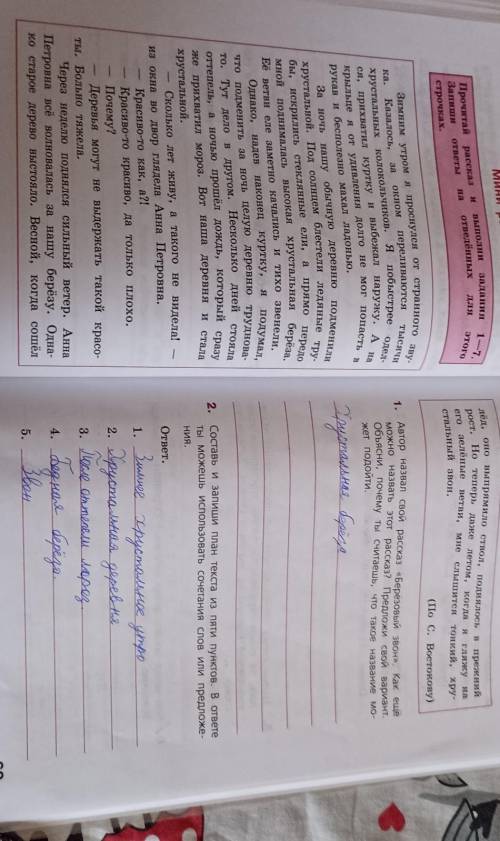 Прочитай рассказ и выполни задания 1—7.
Запиши ответы на отведённых для этого
строчках.
Зимним утром я проснулся от странного зву-
ка. Казалось, за окном переливаются тысячи
хрустальных колокольчиков. Я побыстрее одел-
ся, прихватил куртку и выбежал наружу. А на
крыльце я от удивления долго не мог попасть в
рукав и бесполезно махал ладонью.
За ночь нашу обычную деревню подменили
хрустальной. Под солнцем блестели ледяные тру-
бы, искрились стеклянные ели, а прямо передо
мной поднималась высокая хрустальная берёза.
Её ветви еле заметно качались и тихо звенели.
Однако, надев наконец куртку, я подумал,
что подменить за ночь целую деревню трудnова-
то. Тут дело в другом. Несколько дней стояла
оттепель, а ночью прошёл дождь, который сразу
же прихватил мороз. Вот наша деревня и стала
хрустальной.
— Сколько лет живу, а такого не видела! —
из окна во двор глядела Анна Петровна.
— Красиво-то как, а?!
— Красиво-то красиво, да только плохо.
— Почему?
— Деревья могут не выдержать такой красо-
ты. Больно тяжела.
Через неделю поднялся сильный ветер. Анна
Петровна всё волновалась за нашу берёзу. Одна-
ко старое дерево выстояло. Весной, когда сошёл
лёд, оно выпрямило ствол, поднялось в прежний
рост. Но теперь даже летом, когда я гляжу на
его зелёные ветви, мне слышится тонкий, хру-
стальный звон.
(По С. Востокову)
1. Автор назвал свой рассказ «Берёзовый звон». Как ещё
можно назвать этот рассказ? Предложи свой вариант.
Объясни, почему ты считаешь, что такое название мо-
жет подойти.
Хрустальная берёза
2. Составь и запиши план текста из пяти пунктов. В ответе
ты можешь использовать сочетания слов или предложе-
ния.
Ответ.
1. Зимнее хрустальное утро
2. Хрустальная деревня
3. После оттепели мороз
4. Бедная берёза
5. Звон